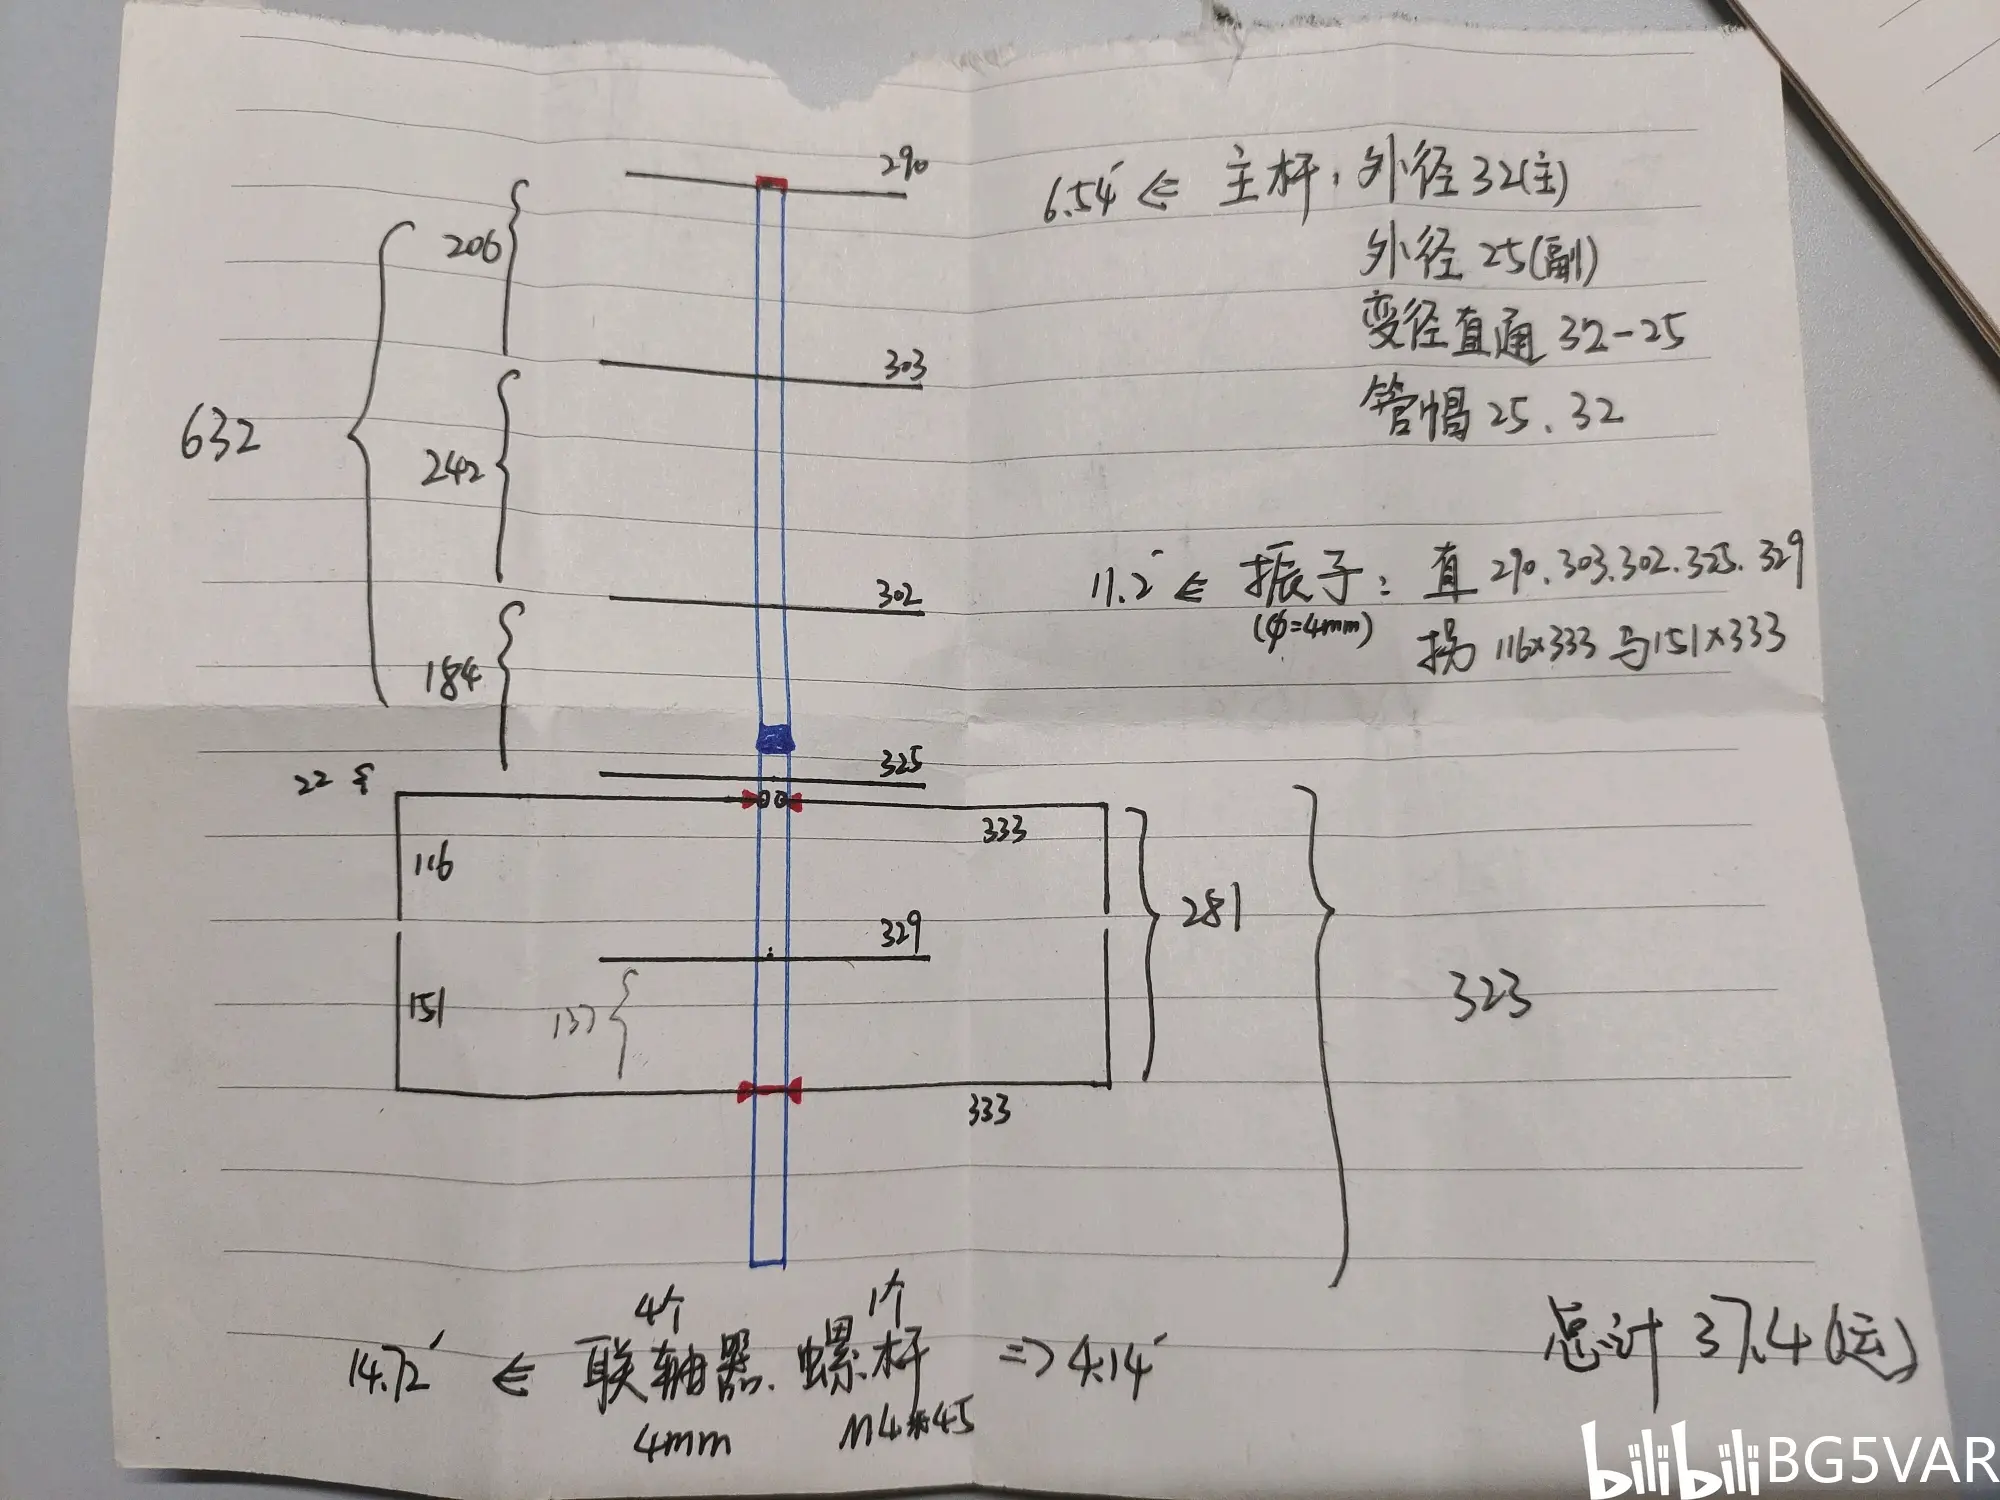 290
6.54 ⇐ 主杆，外径32(主)
206
外径25(副)
变径直通32-25
303
管帽25、32
632
242
11.2 ⇐ 振子：直290.303.302.325.329
(φ=4mm)
302
拐116×333与151×333
184
325
22
333
116
281
329
323
151
137
333
4个
1个
14.72 ⇐ 联轴器、螺杆 ⇒ 4.14
4mm
M4*45
总计37.4(元)
bilibili BG5VAR